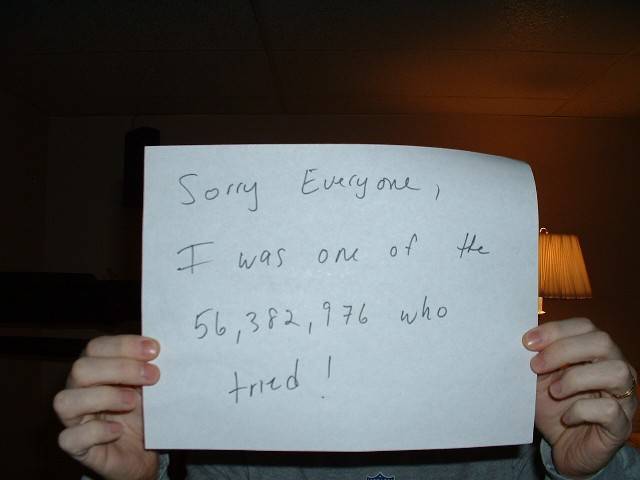 Sorry Everyone,
I was one of the
56,382,976 who
tried!